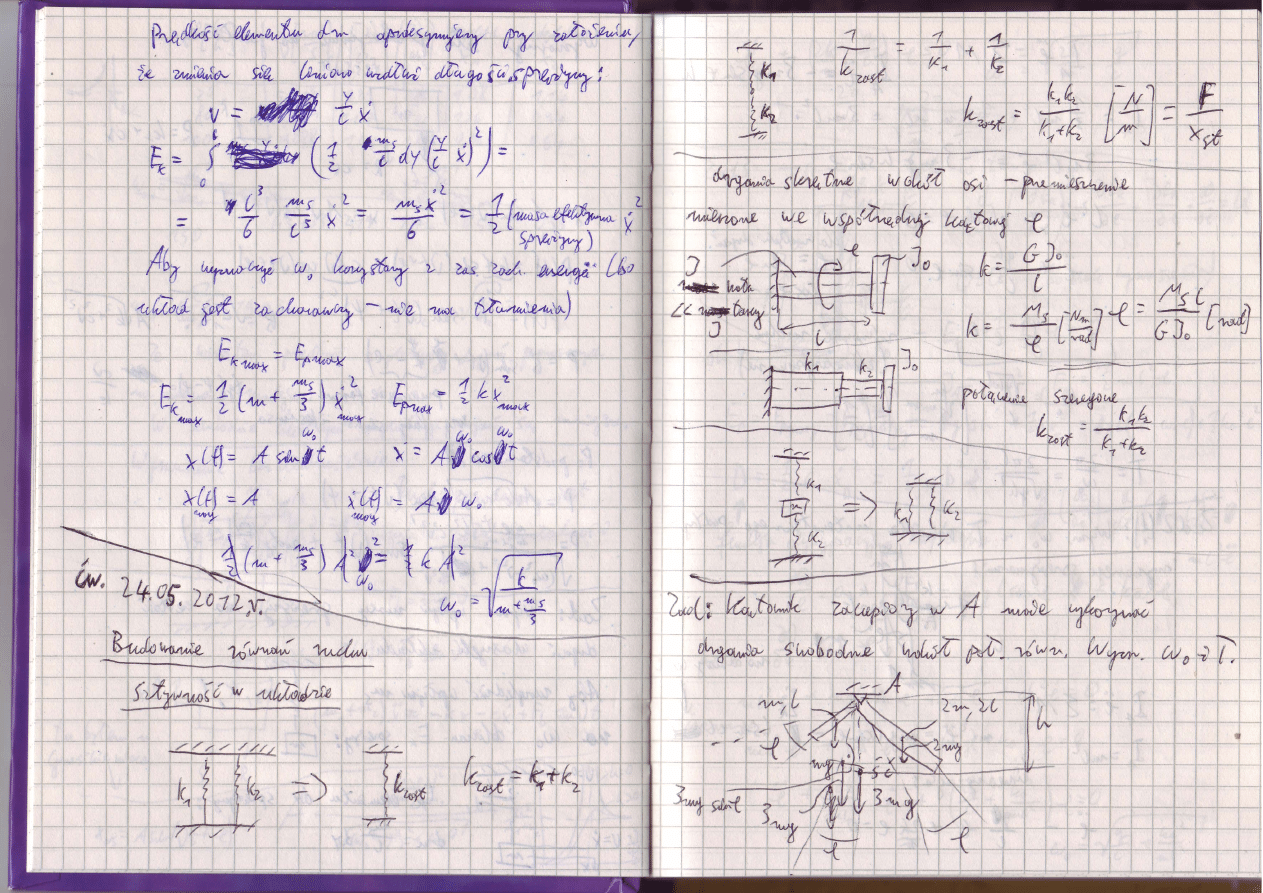 Prędkość elementu dm aproksymujemy przy założeniu,
że zmienia się liniowo wzdłuż długości sprężyny:
v = y/l ẋ
E_k = ∫₀ˡ (1/2 m_s/l dy (y/l ẋ)²) =
= l³/6 m_s/l³ ẋ² = m_s ẋ²/6 = 1/2 (masa efektywna sprężyny) ẋ²
Aby wyznaczyć ω₀ korzystamy z zas. zach. energii (bo
układ jest zachowawczy – nie ma tłumienia)
E_k max = E_p max
E_k max = 1/2 (m + m_s/3) ẋ²_max   E_p max = 1/2 k x²_max
x(t) = A sin ω₀ t   ẋ = A ω₀ cos ω₀ t
x(t)_max = A   ẋ(t)_max = A ω₀
1/2 (m + m_s/3) A² ω₀² = 1/2 k A²
ω₀ = √(k/(m + m_s/3))
ćw. 24.05.2012r.
Budowanie równań ruchu
Sztywność w układzie
k₁ k₂ => k_zast   k_zast = k₁ + k₂
k₁
k₂
1/k_zast = 1/k₁ + 1/k₂
k_zast = k₁k₂/(k₁+k₂) [N/m] = F/x_st
drgania skrętne wokół osi – przemieszczenie
mierzone we współrzędnej kątowej φ
J
<<
J
φ J₀
l
k = GJ₀/l
k = M_s/φ [Nm/rad] φ = M_s l/GJ₀ [rad]
k₁ k₂ J₀
połączenie szeregowe
k_zast = k₁k₂/(k₁+k₂)
k₁
m => k₁ k₂
k₂
Zad: Kątownik zaczepiony w A może wykonywać
drgania swobodne wokół poł. równ. Wyzn. ω₀ i T.
A
m, l 2m, 2l h
φ 2mg
mg śc
3mg 3mg
φ φ